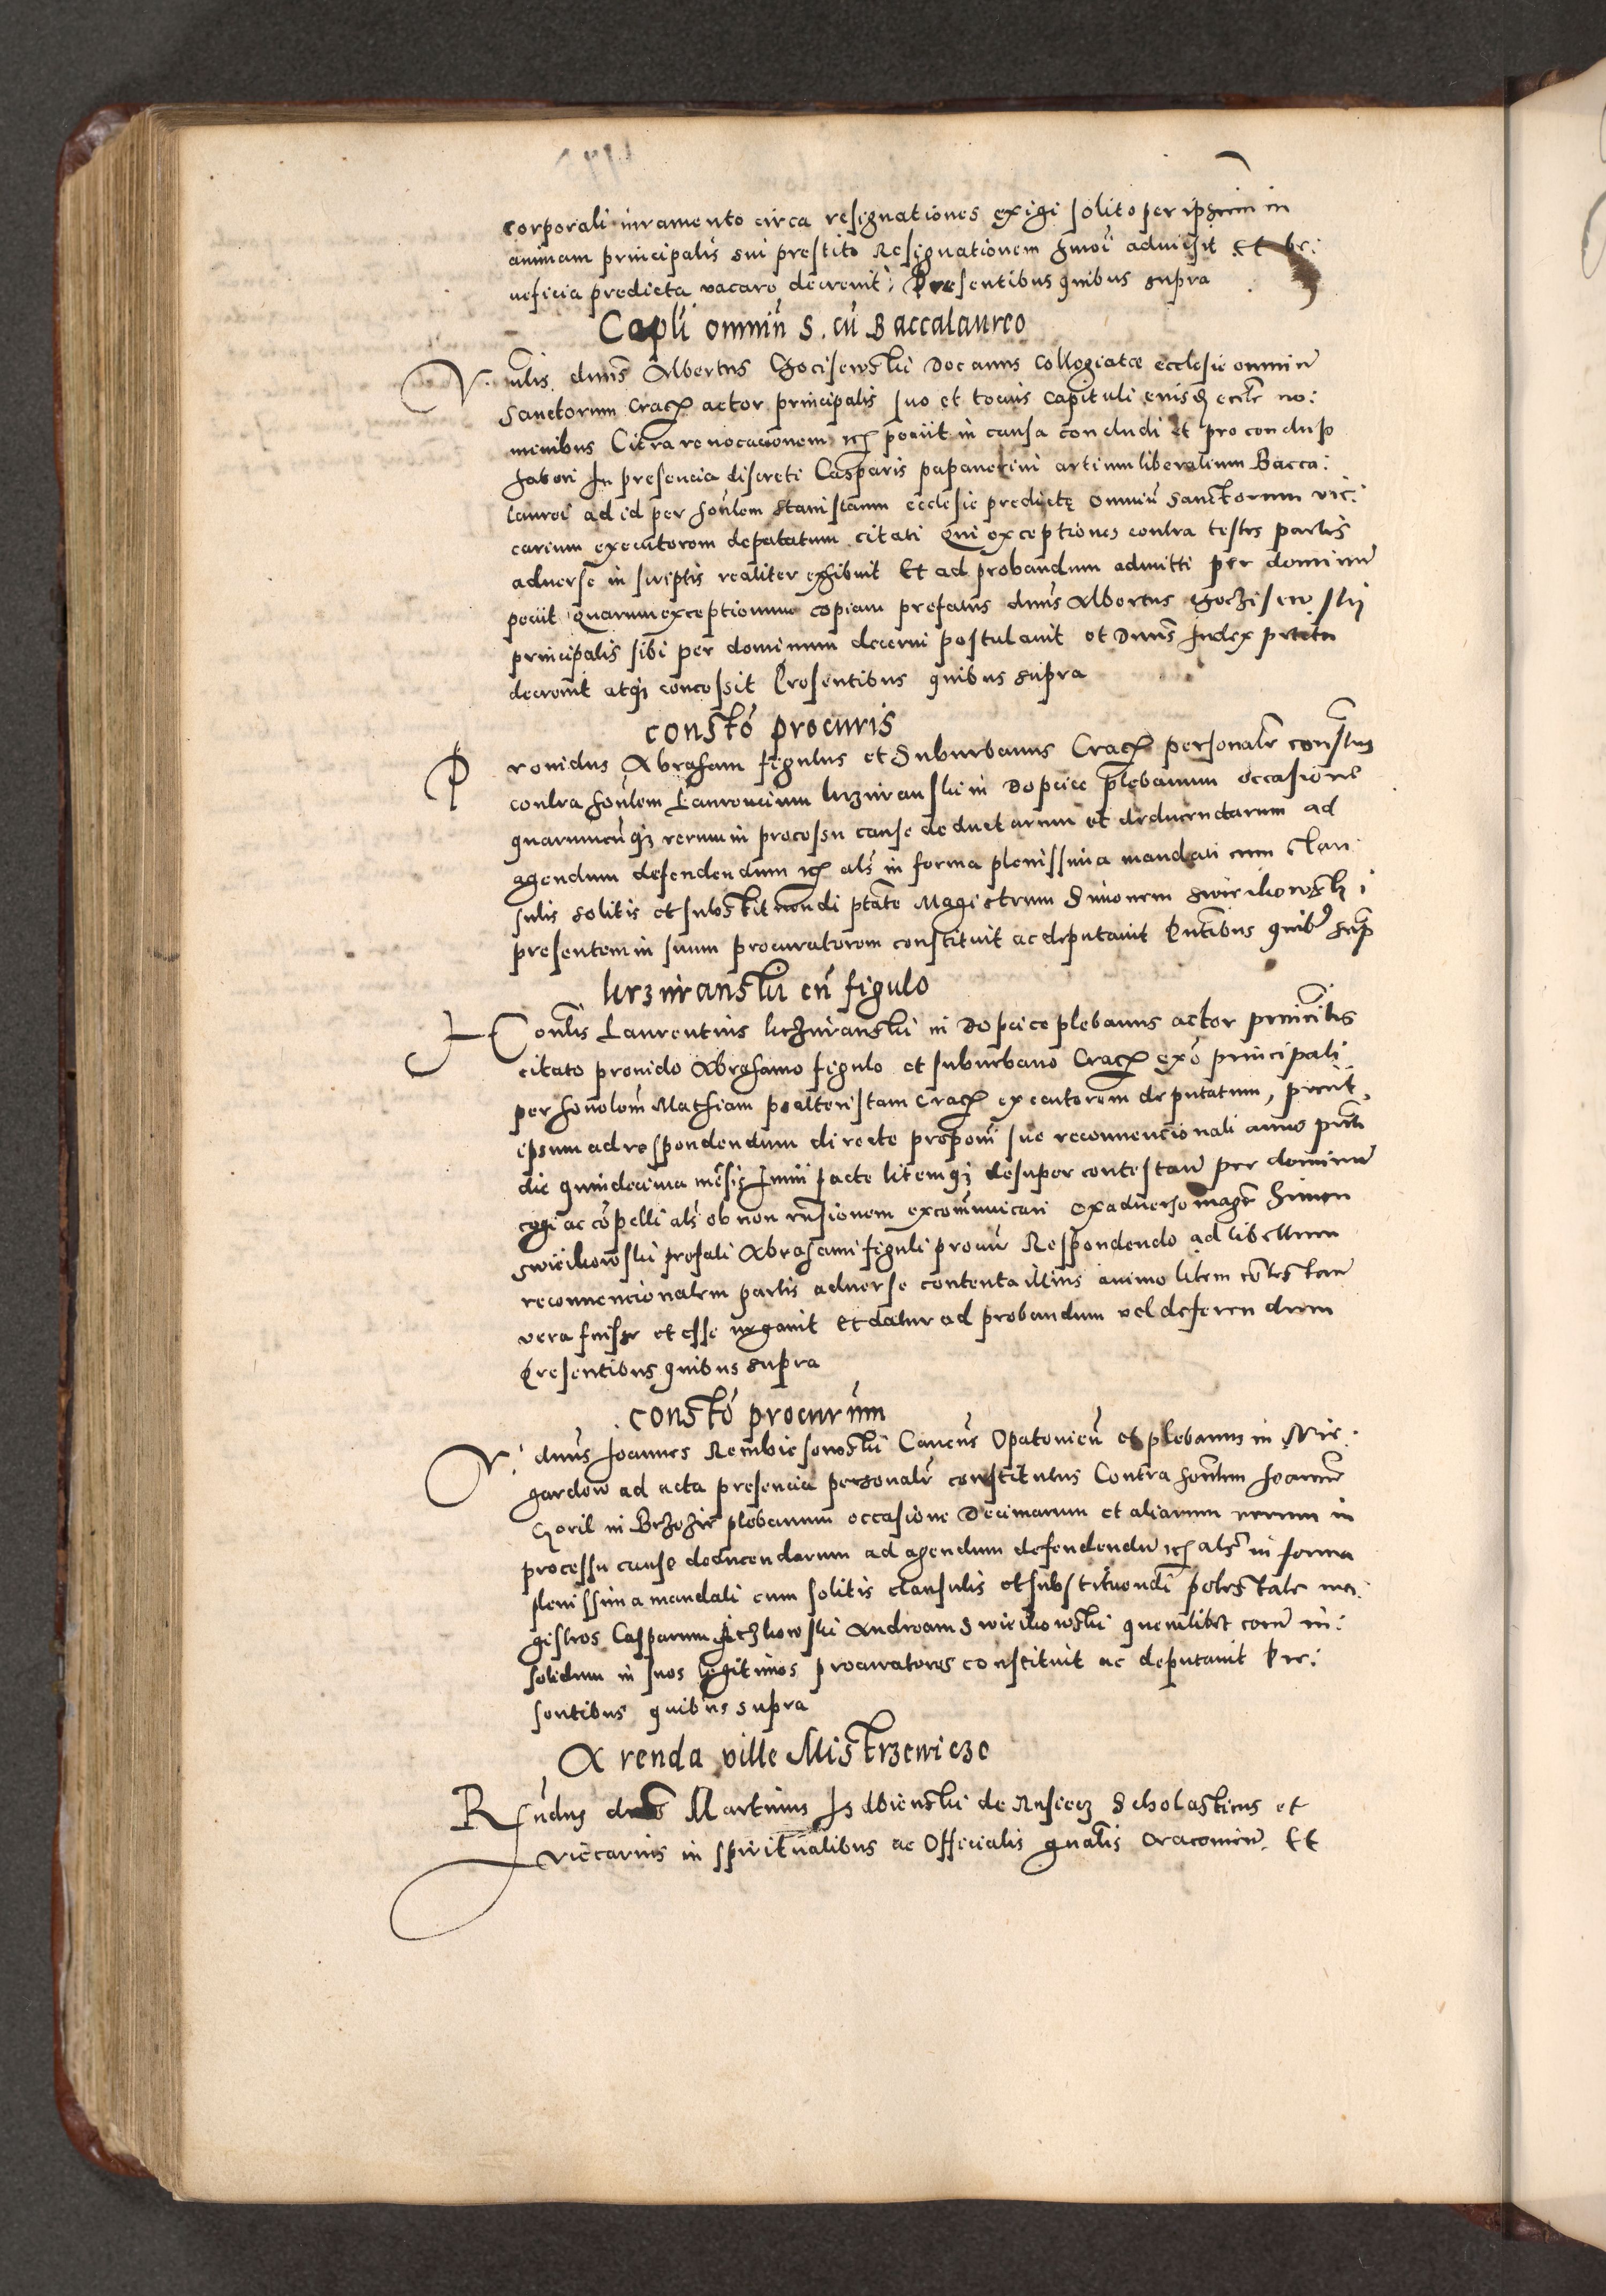 corporali iuramento circa resignationes exigi solito per ipsum in
animam principalis sui prestito Resignationem hmoi admisit Et be:
neficia predicta vacare decrevit, Presentibus quibus supra
Capli omniū S. cū Baccalaureo
V. nlis dnūs Albertus Decanus Collegiatae ecclesie omniū
Sanctorum Crac actor principalis suo et tocius capituli eiusdē eccle no:
minibus Citra revocacionem etc peciit in causa concludi et pro concluso
haberi In presencia discreti Casparis papaverini artium liberalium Bacca:
laurei ad id per honlem Stanislaum ecclesie predictę omniū sanctorum vic:
carium executorem deputatum citati Qui exceptiones contra testes partis
adverse in scriptis realiter exhibuit Et ad probandum admitti per dominū
peciit Quarum exceptionum copiam prefatus dnūs Albertus
principalis sibi per dominum decerni postulavit et Dnūs Iudex
decrevit atqz concessit Presentibus quibus supra
constō procuris
Providus Abraham figulus et Suburbanus Crac personalr constitus
contra honlem Laurencium in Dopcice plebanum occasione
quarumcūqz rerum in processu cause deductarum et deducendarum ad
agendum defendendum etc als in forma plenissima mandati cum clau:
sulis solitis et substituendi ptate Magistrum Simonem Swieikowskj
presentem in suum procuratorem constituit ac deputavit Pntibus quibus supra
cū figulo
Honlis Laurentius in Dopcice plebanus actor principalis
citato provido Abrahamo figulo et suburbano Crac exō principali
per honolem Mathiam psalteristam Crac executorem deputatum, peciit
ipsum ad respondendum directe proponi sue reconvencionali anno pnti
die quindecima mēsis Iunii facte litemqz desuper contestari per dominū
cogi ac cōpelli als ob non rnsionem excommunicari Ex adverso magr Simon
Swieikowski prefati Abrahami figuli procur Respondendo ad libellum
reconvencionalem partis adverse contenta illius animo litem cōtestan
vera fuisse et esse negavit Et datur ad probandum vel deferendum
Presentibus quibus supra
constō procurūm
V. dnūs Ioannes Rembieschowski Cancūs Opatovieñ et plebanus in Wis:
gardow ad acta presencia personalr constitutus Contra honlem Ioannē
Goril in Brzezie plebanum occasione Decimarum et aliarum rerum in
processu cause deducendarum ad agendum defendendū etc als in forma
plenissima mandati cum solitis clausulis et substituendi potestate ma:
gistros Casparum Andream Swieikowski quemlibet eorū in:
solidum in suos legitimos procuratores constituit ac deputavit Pre:
sentibus quibus supra
Arenda ville Mistrzewicze
Rēndus dnūs Martinus Isdbienski de Rusiecz Scholasticus et
viccarius in spiritualibus ac Officialis gnalis Cracovieñ. Et